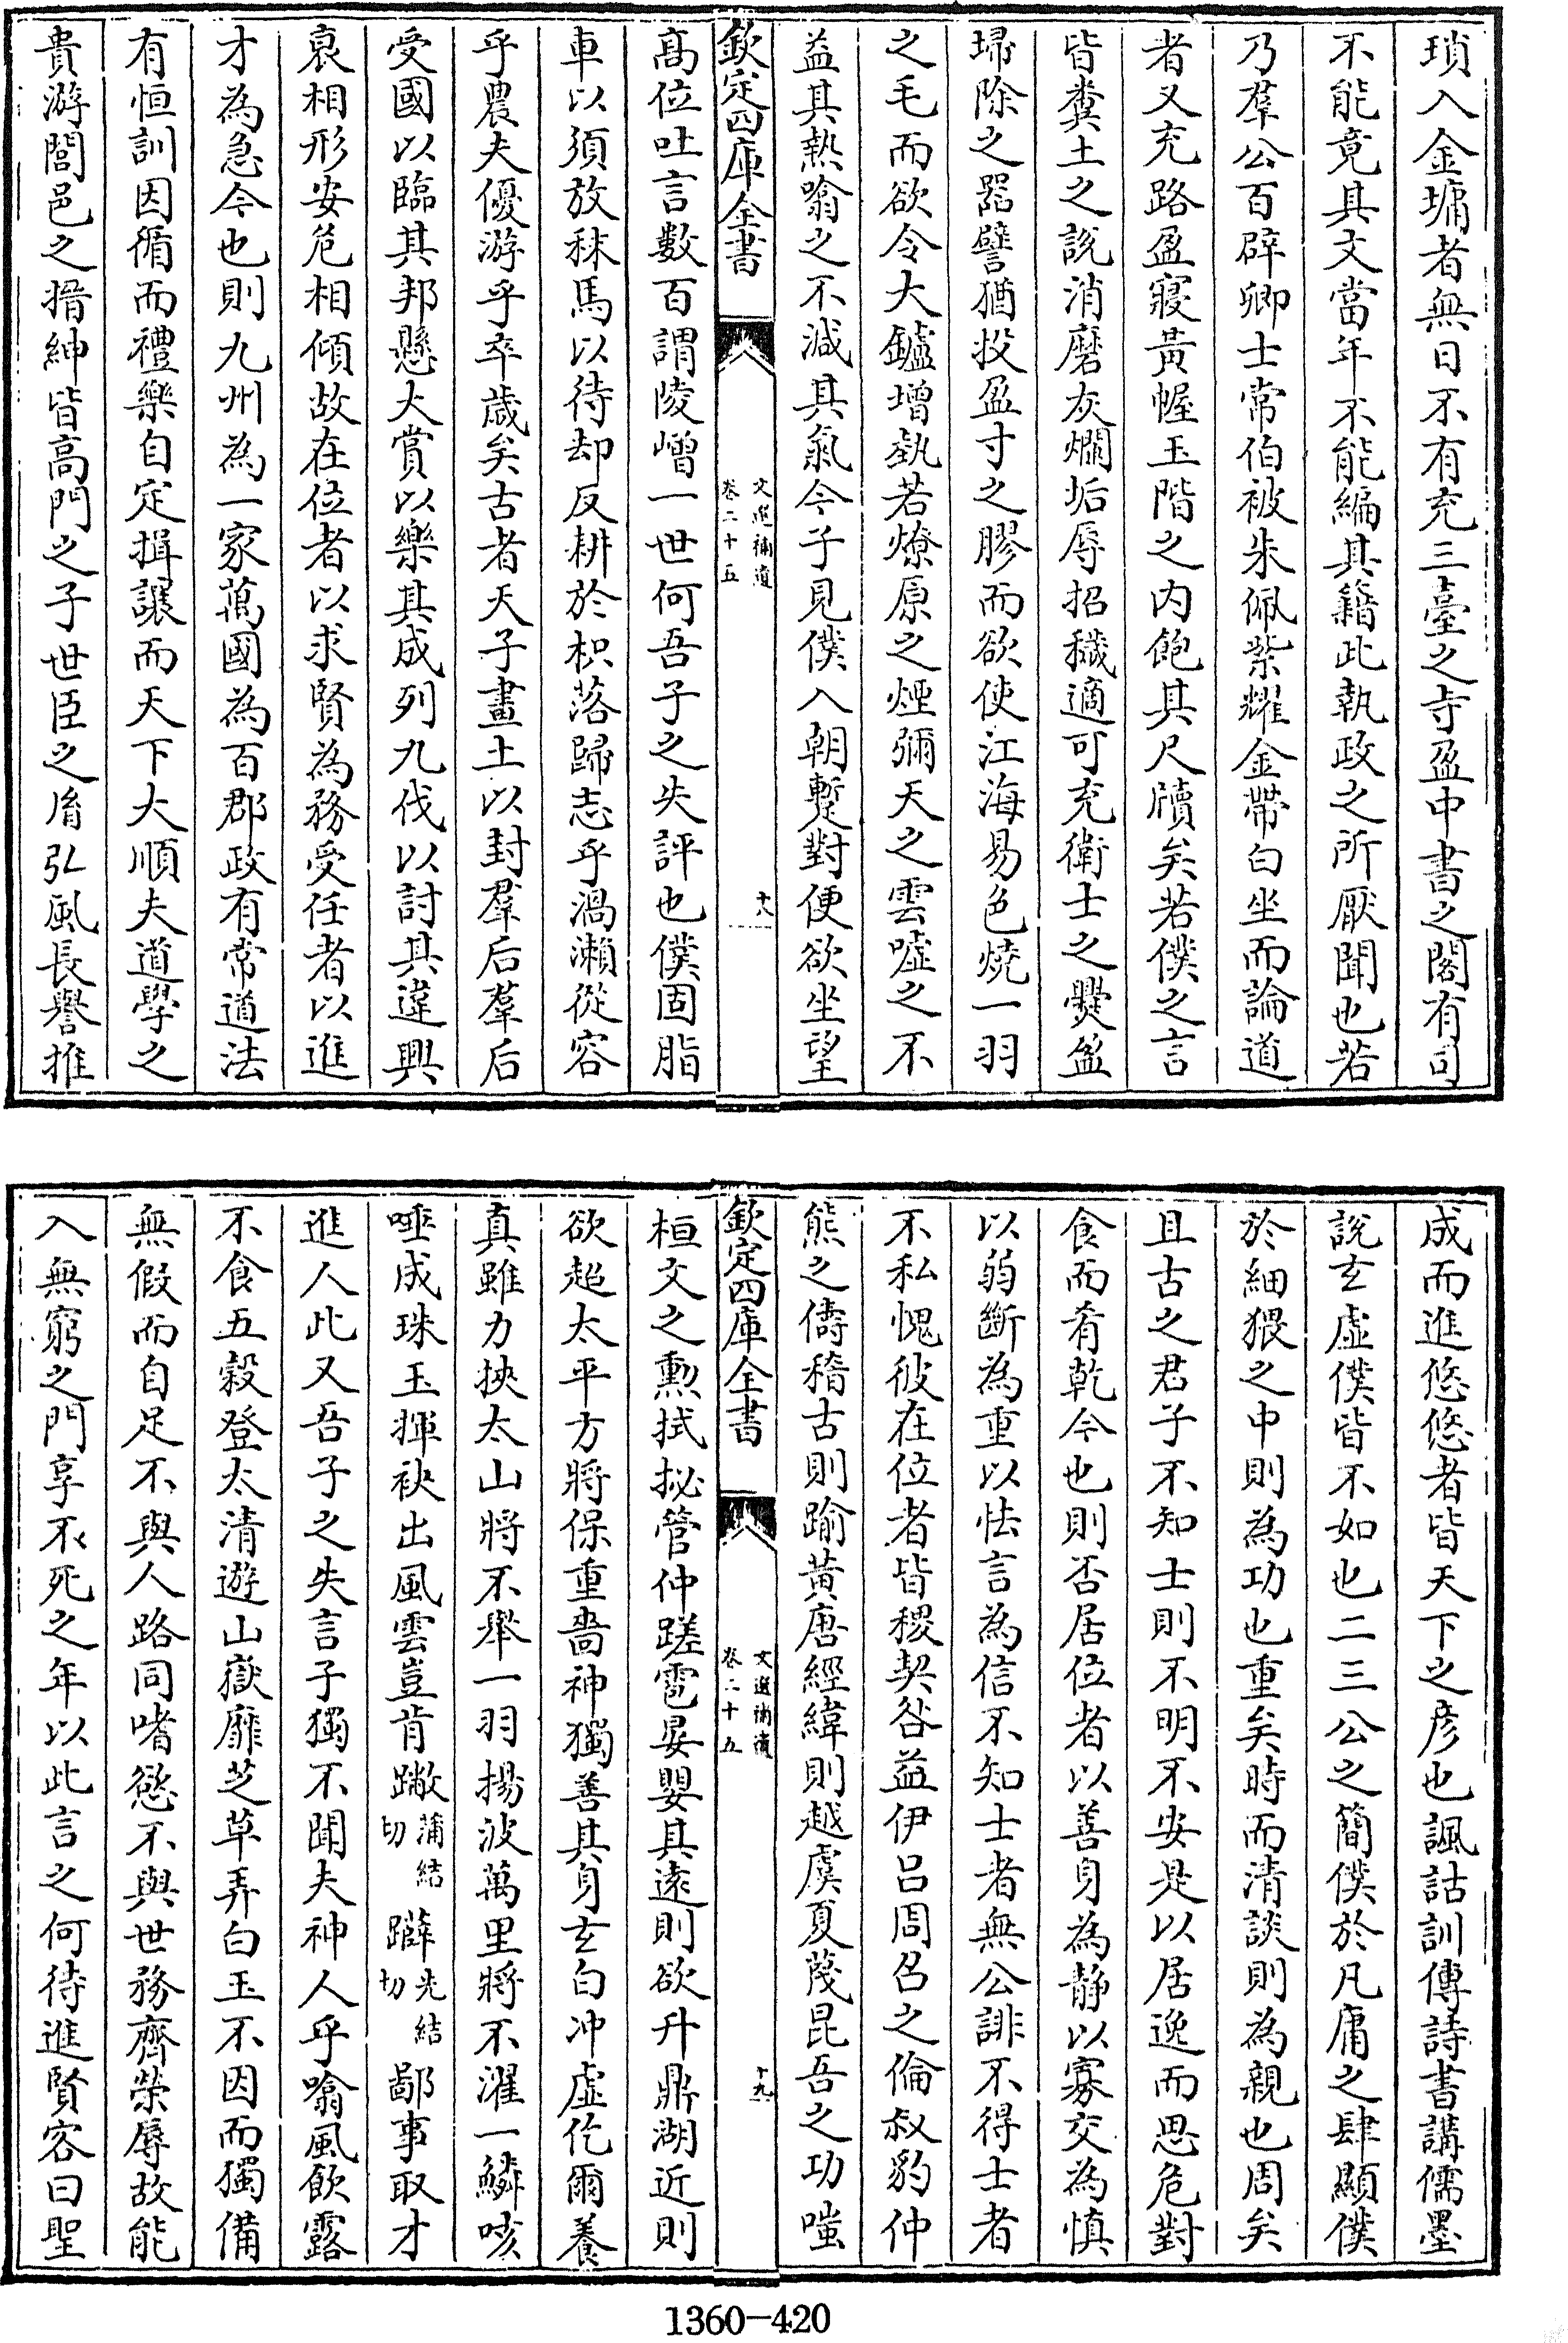 瑣入金墉者無日不有充三臺之寺盈中書之閣有司
不能竟其文當年不能編其籍此執政之所厭聞也若
乃羣公百辟卿士常伯被朱佩紫耀金帶白坐而論道
者又充路盈寢黃幄玉階之内飽其尺牘矣若僕之言
皆糞土之說消磨灰爛垢辱招穢適可充衛士之爨盈
埽除之器譬猶投盈寸之膠而欲使江海易色燒一羽
之毛而欲令大鑪增埶若燎原之煙彌天之雲噓之不
益其熱噏之不減其氣今子見僕入朝蹔對便欲坐望
欽定四庫全書
文選補遺
卷二十五
十八
高位吐言數百謂陵嶒一世何吾子之失評也僕固脂
車以須放秣馬以待却反耕於枳落歸志乎渦瀨從容
乎農夫優游乎卒歲矣古者天子畫土以封羣后羣后
受國以臨其邦懸大賞以樂其成列九伐以討其違興
衰相形安危相傾故在位者以求賢為務受任者以進
才為急今也則九州為一家萬國為百郡政有常道法
有恒訓因循而禮樂自定揖讓而天下大順夫道學之
貴游閭邑之搢紳皆高門之子世臣之胤弘風長譽推
成而進悠悠者皆天下之彦也諷詁訓傳詩書講儒墨
說玄虛僕皆不如也二三公之簡僕於凡庸之肆顯僕
於細猥之中則為功也重矣時而清談則為親也周矣
且古之君子不知士則不明不安是以居逸而思危對
食而肴乾今也則否居位者以善身為靜以寡交為慎
以弱斷為重以怯言為信不知士者無公誹不得士者
不私愧彼在位者皆稷契咎益伊吕周召之倫叔豹仲
熊之儔稽古則踰黄唐經緯則越虞夏蔑昆吾之功嗤
欽定四庫全書
文選補遺
卷二十五
十九
桓文之勲拭抄管仲蹉雹晏嬰其遠則欲升鼎湖近則
欲超太平方將保重嗇神獨善其身玄白冲虛仡爾養
真雖力挾太山將不舉一羽揚波萬里將不濯一鱗咳
唾成珠玉揮袂出風雲豈肯蹩蒲結切躠先結切鄙事取才
進人此又吾子之失言子獨不聞夫神人乎噏風飲露
不食五穀登太清遊山嶽靡芝草弄白玉不因而獨備
無假而自足不與人路同嗜慾不與世務齊榮辱故能
入無窮之門享不死之年以此言之何待進賢客曰聖
1360-420